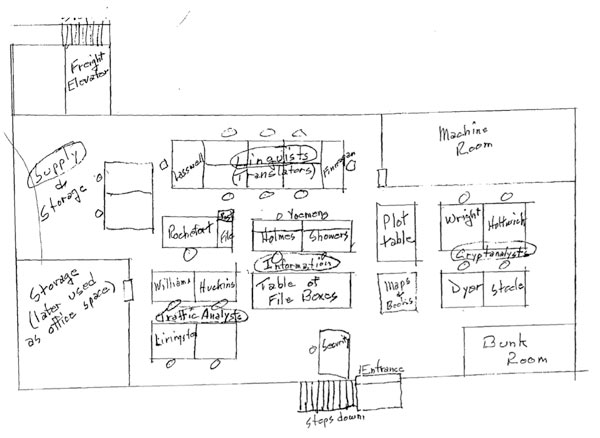 Freight
Elevator
Machine
Room
Supply
&
Storage
Lasswell
Linguists
(Translators)
Finnegan
Yeomen
Rochefort
File
Holmes
Showers
Plot
table
Wright
Holtwick
Cryptanalysts
Information
Storage
(later used
as office space)
Williams
Huckins
Table of
File Boxes
Maps &
Books
Dyer
Steele
Traffic Analysts
Livingston
Security
Bunk
Room
Entrance
Steps down